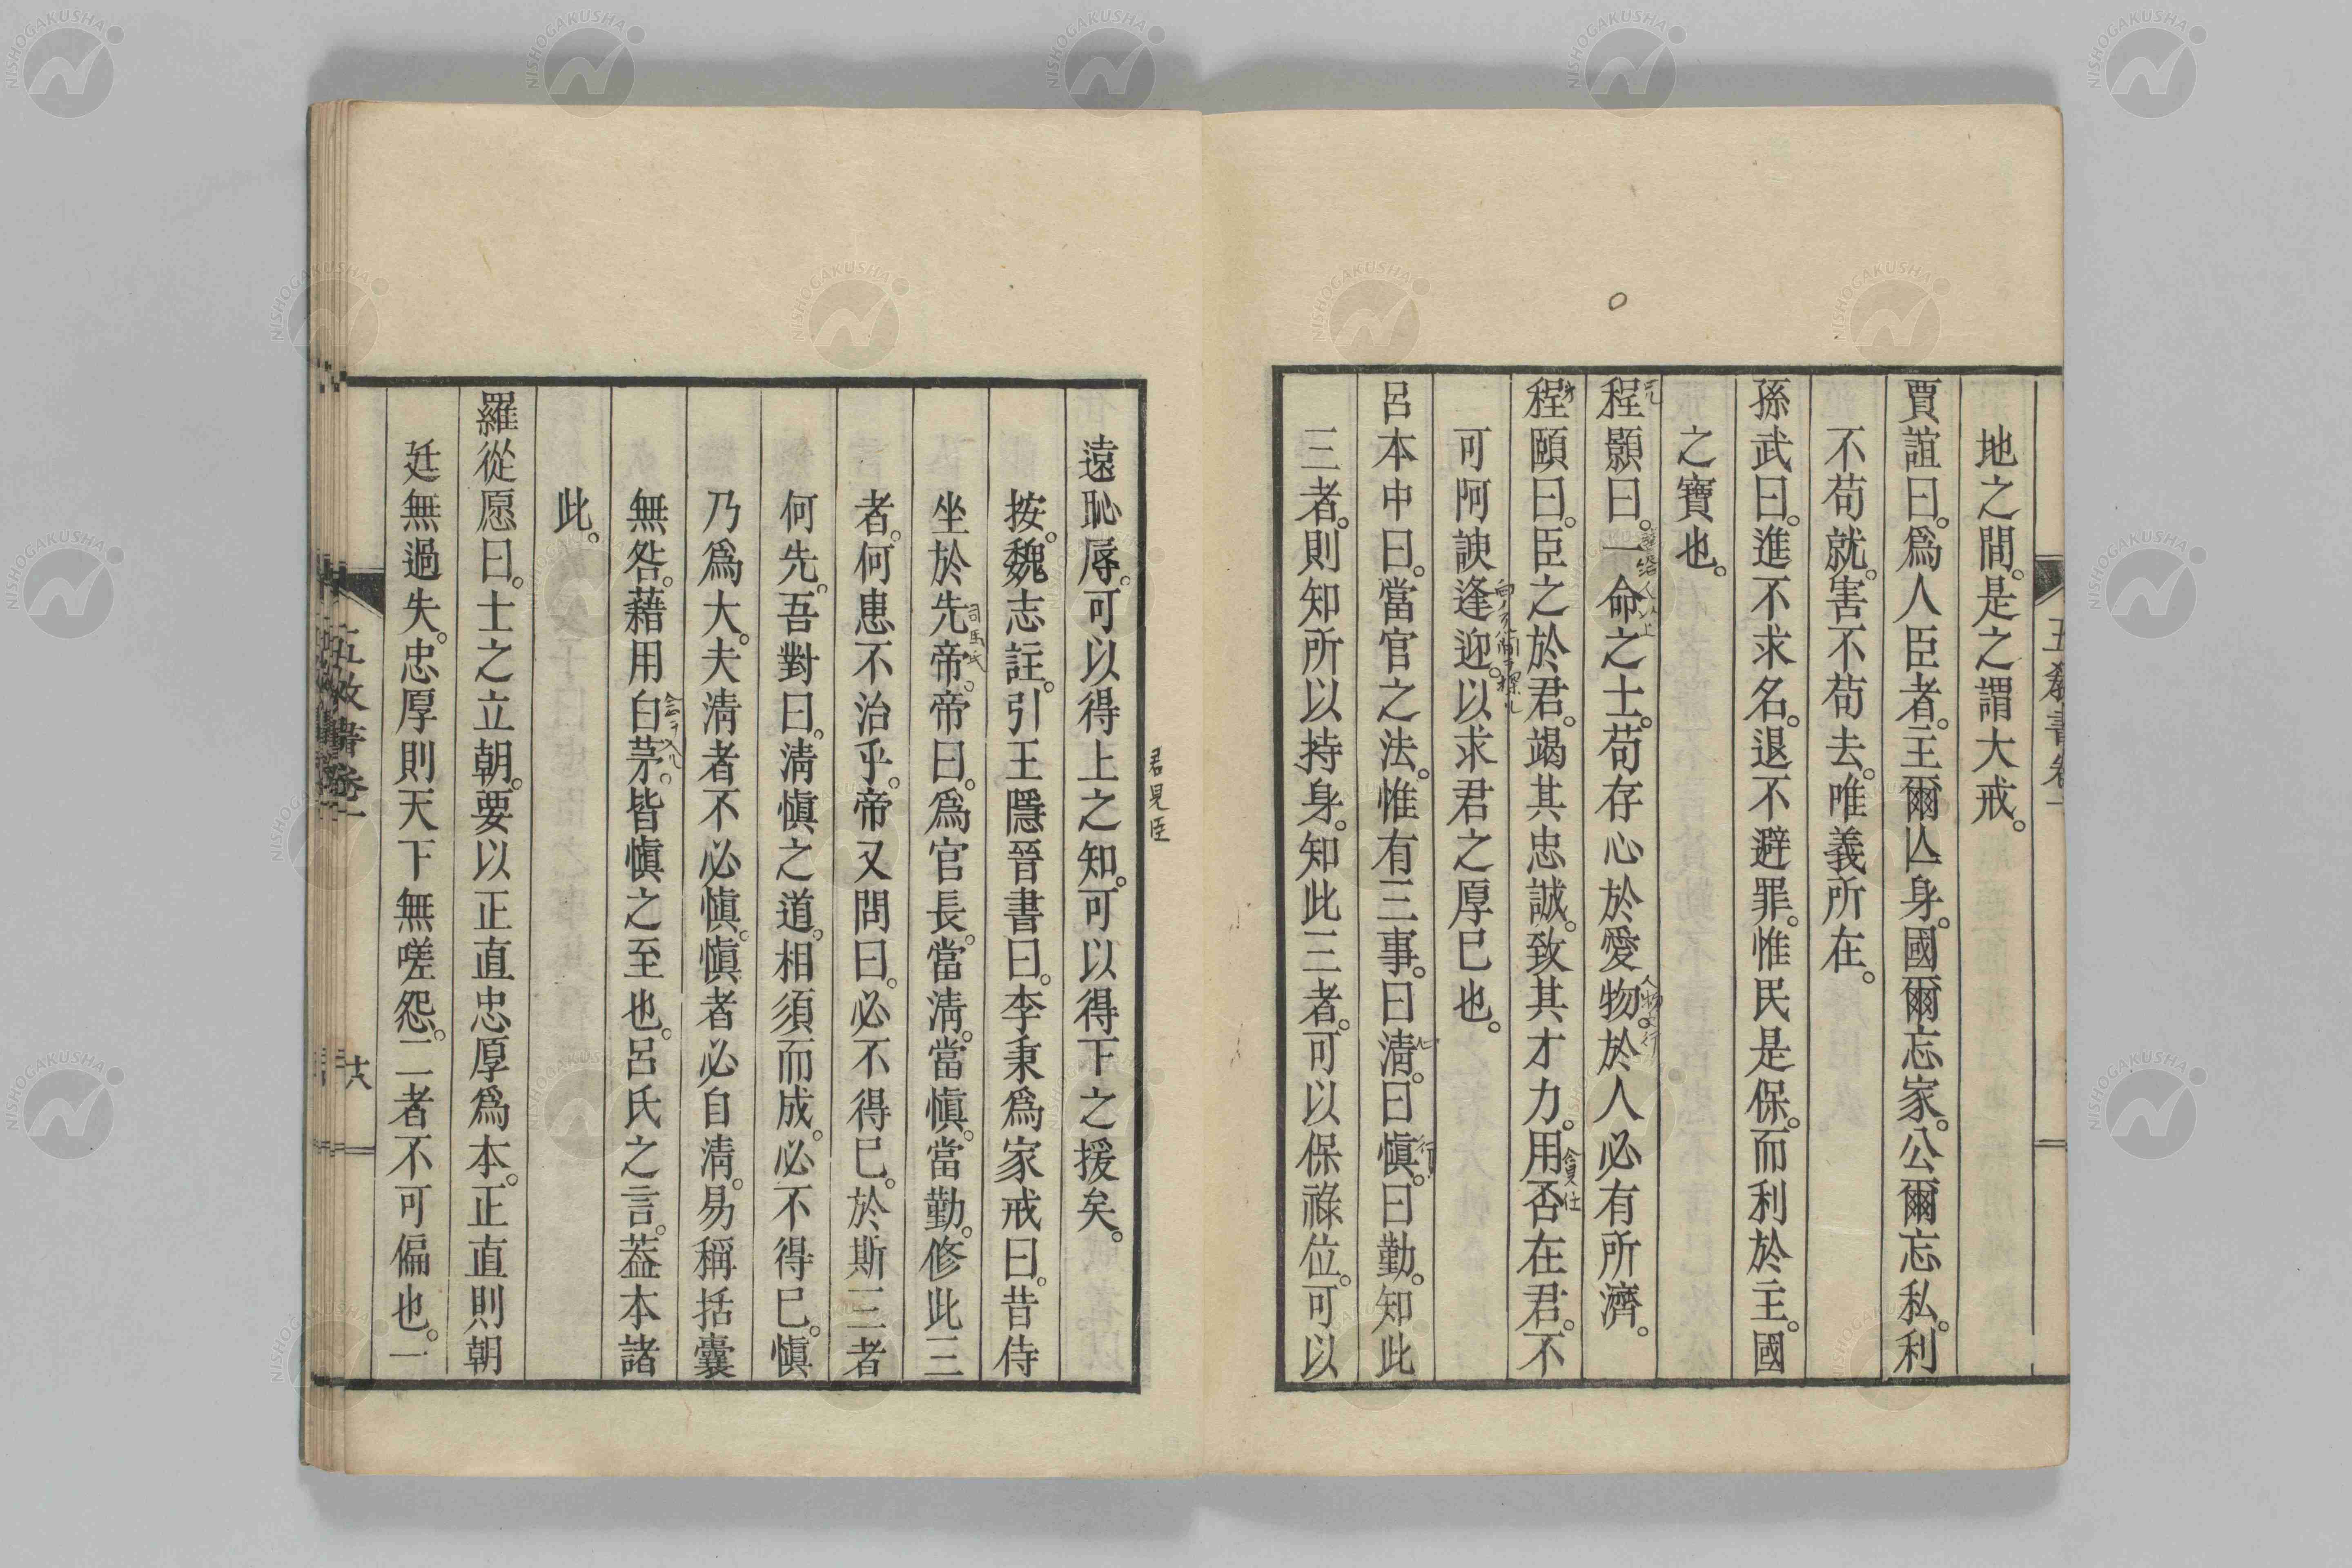 地之間。是之謂大戒。
賈誼曰。爲人臣者。主爾亾身。國爾忘家。公爾忘私。利
不苟就。害不苟去。唯義所在。
孫武曰。進不求名。退不避罪。惟民是保。而利於主。國
之寶也。
程顥曰。一命之士。苟存心於愛物。於人必有所濟。
程頤曰。臣之於君。竭其忠誠。致其才力。用否在君。不
可阿諛逢迎。以求君之厚已也。
呂本中曰。當官之法。惟有三事。曰清。曰愼。曰勤。知此
三者。則知所以持身。知此三者。可以保祿位。可以
遠恥辱。可以得上之知。可以得下之援矣。
君見臣
按。魏志註。引王隱晉書曰。李秉爲家戒曰。昔侍
坐於先帝。帝曰。爲官長。當清。當愼。當勤。修此三
司馬氏
者。何患不治乎。帝又問曰。必不得已。於斯三者
何先。吾對曰。清愼之道。相須而成。必不得已。愼
乃爲大。夫清者不必愼。愼者必自清。易稱括囊
無咎。藉用白茅。皆愼之至也。呂氏之言。葢本諸
此。
羅從愿曰。士之立朝。要以正直忠厚爲本。正直則朝
廷無過失。忠厚則天下無嗟怨。二者不可偏也。一
五敎書卷一
十六
NISHOGAKUSHA